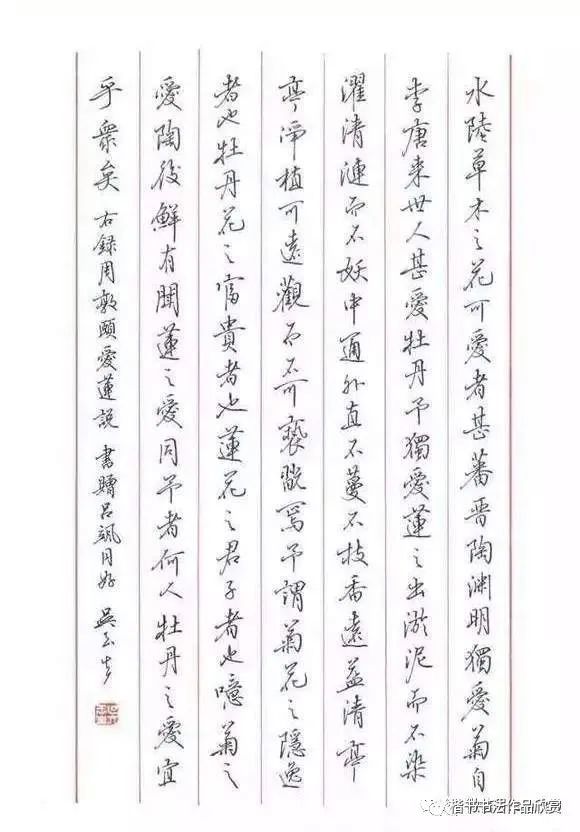 水陸草木之花可愛者甚蕃晉陶淵明獨愛菊自
李唐来世人甚愛牡丹予獨愛蓮之出淤泥而不染
濯清漣而不妖中通外直不蔓不枝香遠益清亭
亭淨植可遠觀而不可褻翫焉予謂菊花之隱逸
者也牡丹花之富貴者也蓮花之君子者也噫菊之
愛陶後鮮有聞蓮之愛同予者何人牡丹之愛宜
乎眾矣 右録周敦頤愛蓮説 書贈呂颯同好 吳玉生
楷书书法作品欣赏